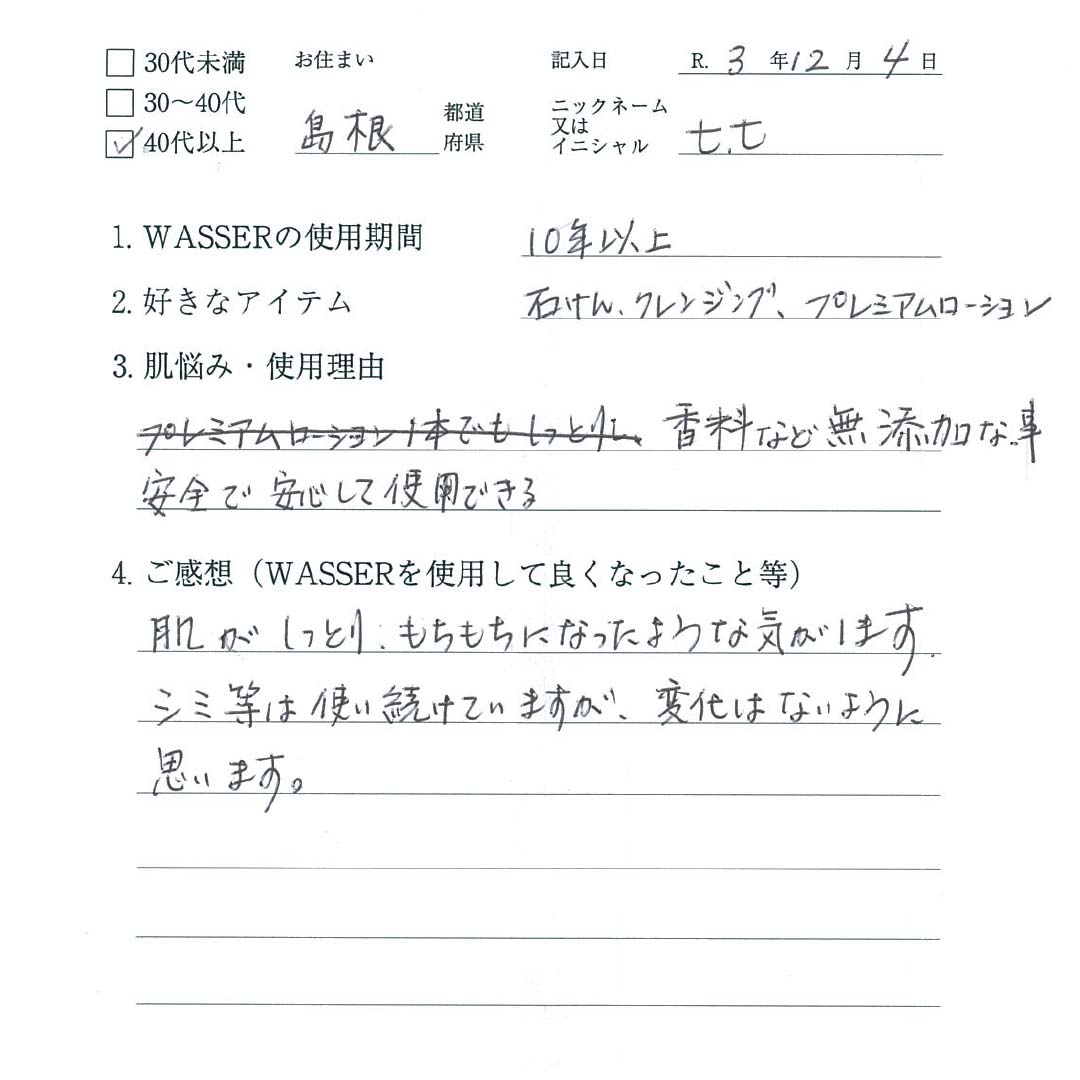 30代未満
30〜40代
40代以上
お住まい
島根 都道府県
記入日 R. 3 年 12 月 4 日
ニックネーム又はイニシャル 七.七
1. WASSERの使用期間 10年以上
2. 好きなアイテム 石けん、クレンジング、プレミアムローション
3. 肌悩み・使用理由
プレミアムローション1本でもしっとりし、香料など無添加な事
安全で安心して使用できる
4. ご感想（WASSERを使用して良くなったこと等）
肌がしっとり、もちもちになったような気がします.
シミ等は使い続けていますが、変化はないように
思います。